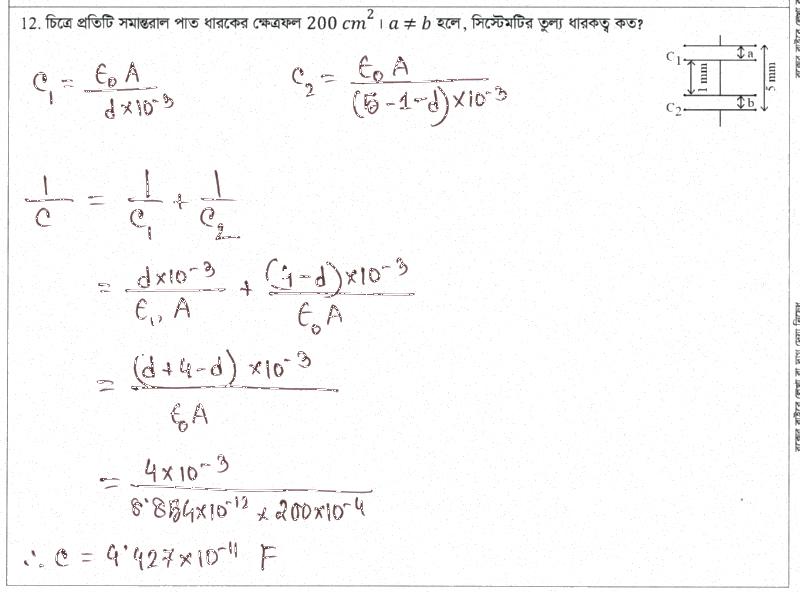 12. চিত্রে প্রতিটি সমান্তরাল পাত ধারকের ক্ষেত্রফল 200 cm² । a ≠ b হলে, সিস্টেমটির তুল্য ধারকত্ব কত?
C₁ a
1 mm 5 mm
C₂ b
C₁ = ε₀ A / d×10⁻³ C₂ = ε₀ A / (5-1-d)×10⁻³
1/C = 1/C₁ + 1/C₂
= d×10⁻³ / ε₀ A + (4-d)×10⁻³ / ε₀ A
= (d+4-d) ×10⁻³ / ε₀ A
= 4×10⁻³ / 8.854×10⁻¹² × 200×10⁻⁴
∴ C = 4.427×10⁻¹¹ F